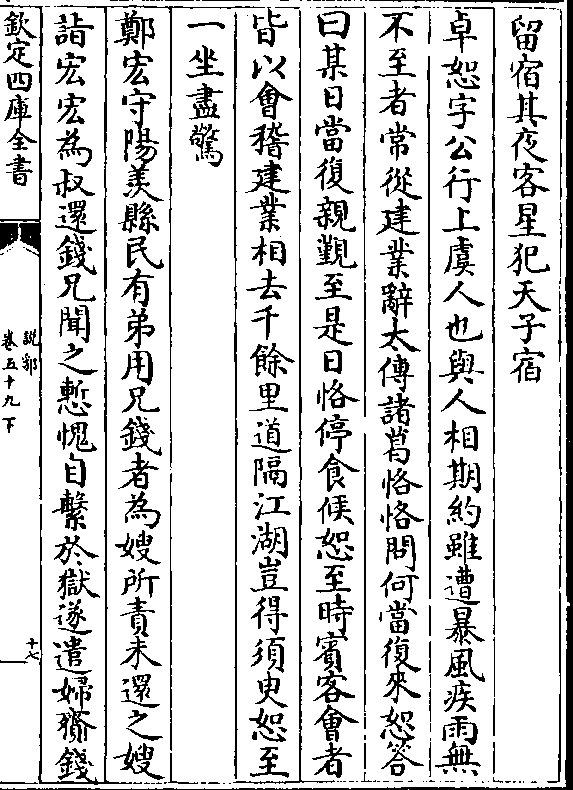 留宿其夜客星犯天子宿
卓恕字公行上虞人也與人相期約雖遭暴風疾雨無
不至者常從建業辭太傅諸葛恪恪問何當復來恕答
曰某日當復親覲至是日恪停食候恕至時賓客會者
皆以會稽建業相去千餘里道隔江湖豈得須臾恕至
一坐盡驚
鄭宏守陽羨縣民有弟用兄錢者為嫂所責未還之嫂
詣宏宏為叔還錢兄聞之慙愧自繫於獄遂遣婦齎錢
欽定四庫全書
說郛
卷五十九下
十七